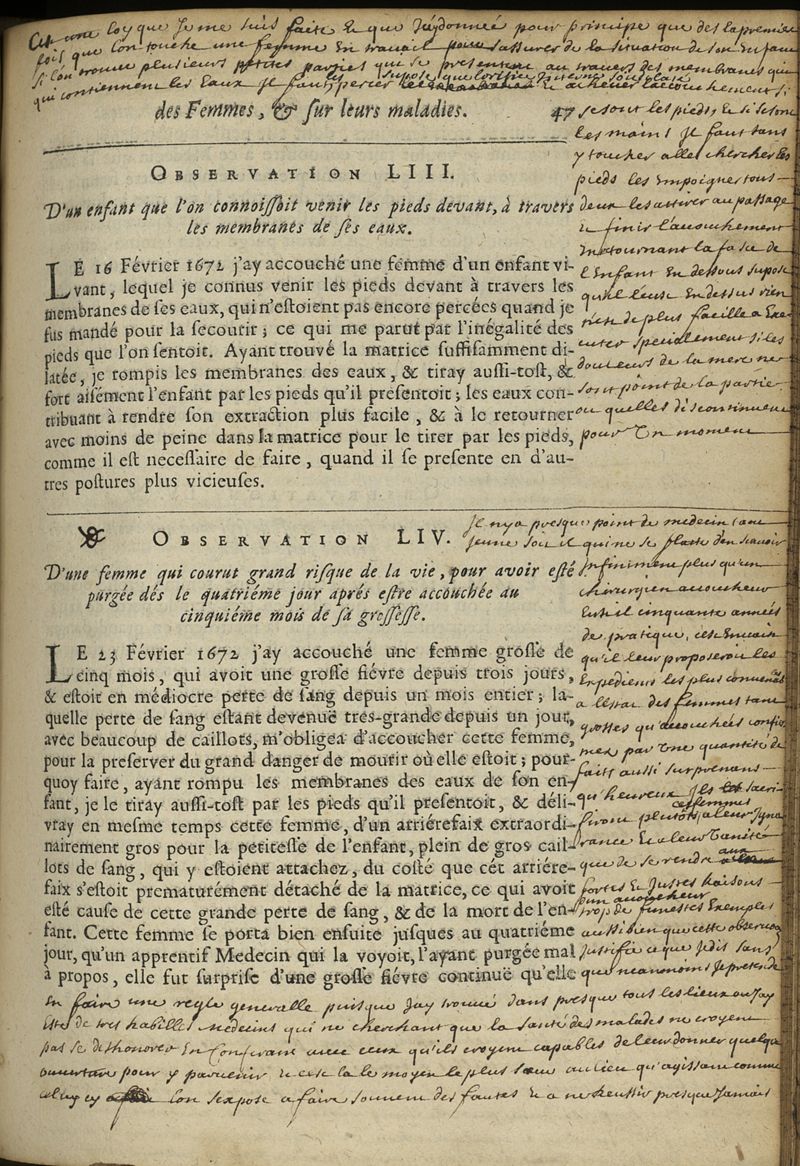 C'est une loy que je me suis faite et que j'ay donnée pour principe que des la premiere
fois que l'on touche une femme en travail pour s'assurer de la situation de son enfant
si l'on trouve plusieurs petites parties qui se presentent au travers des membranes qui
qui contiennent les eaux il faut percer les et achever l'accouchement si
des Femmes, & sur leurs maladies. 47
se sont les pieds, et si se sont
les mains il faut tans
y toucher aller chercher les
pieds les empoigner tous
deux les attirer au passage
et finir l'accouchement
en tournant la face de
l'enfant en dessous supose
qu'il l'eust en dessus rien
n'est de plus facille a exe
cuter specialement si les
douleurs de la mere ne
sont point de la partie
ou quelles discontinuent
pour un moment
OBSERVATION LIII.
D'un enfant que l'on connoiſſoit venir les pieds devant, à travers
les membranes de ſes eaux.
LE 16 Février 1672 j'ay accouché une femme d'un enfant vi-
vant, lequel je connus venir les pieds devant à travers les
membranes de ſes eaux, qui n'eſtoient pas encore percées quand je
fus mandé pour la ſecourir; ce qui me parut par l'inégalité des
pieds que l'on ſentoit. Ayant trouvé la matrice ſuffiſamment di-
latée, je rompis les membranes des eaux, & tiray auſſi-toſt, &
fort aiſément l'enfant par les pieds qu'il preſentoit; les eaux con-
tribuant à rendre ſon extraction plus facile, & à le retourner
avec moins de peine dans la matrice pour le tirer par les pieds,
comme il eſt neceſſaire de faire, quand il ſe preſente en d'au-
tres poſtures plus vicieuſes.
OBSERVATION LIV.
D'une femme qui courut grand riſque de la vie, pour avoir eſté
purgée dés le quatriéme jour aprés eſtre accouchée au
cinquiéme mois de ſa groſſeſſe.
LE 23 Février 1672 j'ay accouché une femme groſſe de
cinq mois, qui avoit une groſſe fiévre depuis trois jours,
& eſtoit en médiocre perte de ſang depuis un mois entier; la-
quelle perte de ſang eſtant devenuë trés-grande depuis un jour,
avec beaucoup de caillots, m'obligea d'accoucher cette femme,
pour la preſerver du grand danger de mourir où elle eſtoit; pour-
quoy faire, ayant rompu les membranes des eaux de ſon en-
fant, je le tiray auſſi-toſt par les pieds qu'il preſentoit, & déli-
vray en meſme temps cette femme, d'un arriérefaix extraordi-
nairement gros pour la petiteſſe de l'enfant, plein de gros cail-
lots de ſang, qui y eſtoient attachez, du coſté que cét arriére-
faix s'eſtoit prematurément détaché de la matrice, ce qui avoit
eſté cauſe de cette grande perte de ſang, & de la mort de l'en-
fant. Cette femme ſe porta bien enſuite juſques au quatriéme
jour, qu'un apprentif Medecin qui la voyoit, l'ayant purgée mal
à propos, elle fut ſurpriſe d'une groſſe fiévre continuë qu'elle
Il n'y a presque point de medecin tant
jeune soit il qui ne se flatte d'en scavoir
infiniment plus qu'un
chirurgien accoucheur
eust il cinquante années
de pratique, c'est en vain
qu'il leur proposeroit les
expediens les plus convenables
a l'estat des femmes tant
grosses qu'accouchées confir
mez par une quantité de
faits aussi surprenans
qu'heureux ils les sacri
firont plutost a leur igno
rance et a leur vanité
que de se rendre aux
fortes et justes raisons
d'un accoucheur
trop de funestes exemples
aussi bien que cette observaon
justifie ce que je dis sans
que neanmoins je pretende
en faire une regle generalle puisque j'ay trouvé dans presque tous les lieux ou j'ay
esté de tres habilles medecins qui ne cherchant que la santé des malades ne croyent
pas se deshonorer en conferant avec ceux qu'ils croyent capables de leur donner quelque
ouverture pour y parvenir et c'est la le moyen le plus sceur au lieu qu'agissant comme
celuy cy l'on s'expose a faire souvent des fautes et a ne reussir presque jamais